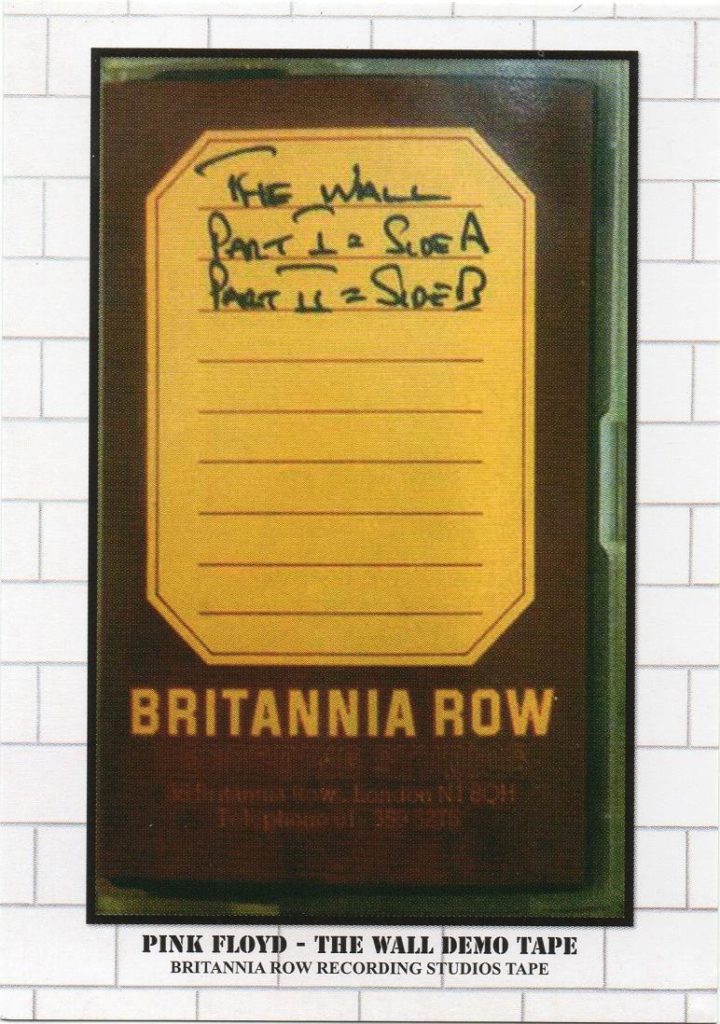 THE WALL
PART I = SIDE A
PART II = SIDE B
BRITANNIA ROW
35 Britannia Row, London N1 8QH
Telephone 01
PINK FLOYD - THE WALL DEMO TAPE
BRITANNIA ROW RECORDING STUDIOS TAPE